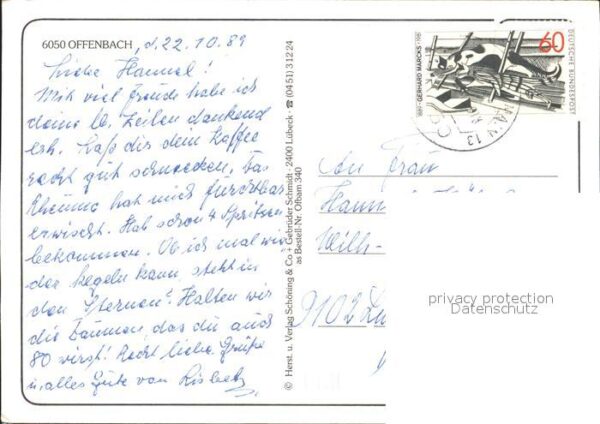 6050 OFFENBACH, d. 22.10.89
Liebe Hannel!
Mit viel Freude habe ich
deine lb. Zeilen dankend
erh. Laß dir dein Kaffee
recht gut schmecken. Das
Rheuma hat mich furchtbar
erwischt. Hab schon 4 Spritzen
bekommen. Ob ich mal wie
der kegeln kann steht in
den Sternen". Halten wir
die Daumen, das du auch
80 wirst! Recht liebe Grüße
u. alles Gute von Lisbeth
© Herst. u. Verlag Schöning & Co + Gebrüder Schmidt · 2400 Lübeck · ☎ (04 51) 3 12 24
as Bestell-Nr. Ofbam 340
1889-GERHARD MARCKS-1981
60
DEUTSCHE BUNDESPOST
MAIN 13
An Frau
Hann
Wilh-
9102
privacy protection
Datenschutz